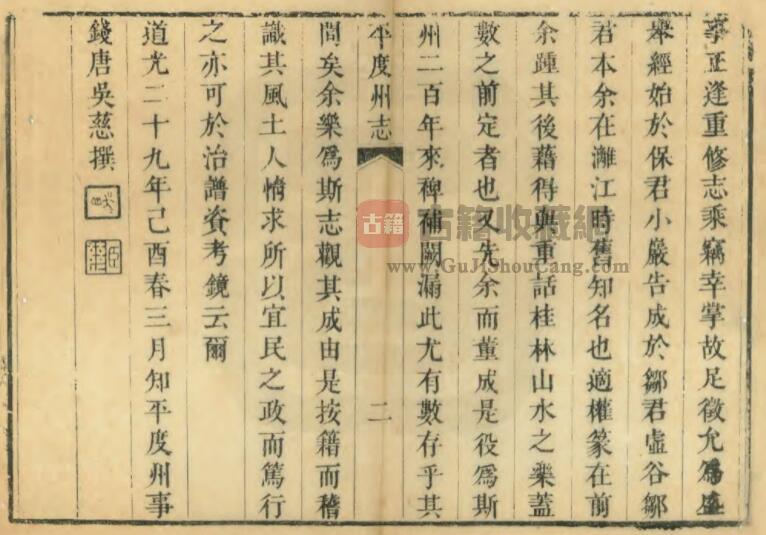 事正逢重修志乘竊幸掌故足徵允爲盛
舉經始於保君小嚴告成於鄒君虛谷鄒
君本余在灕江時舊知名也適權篆在前
余踵其後藉得與重話桂林山水之樂蓋
數之前定者也又先余而董成是役爲斯
州二百年來稗補闕漏此尤有數存乎其
平度州志
二
間矣余樂爲斯志觀其成由是按籍而稽
識其風土人情求所以宜民之政而篤行
之亦可於治譜資考鏡云爾
道光二十九年己酉春三月知平度州事
錢唐吳慈撰
古籍
古籍收藏網
www.GuJiShouCang.com